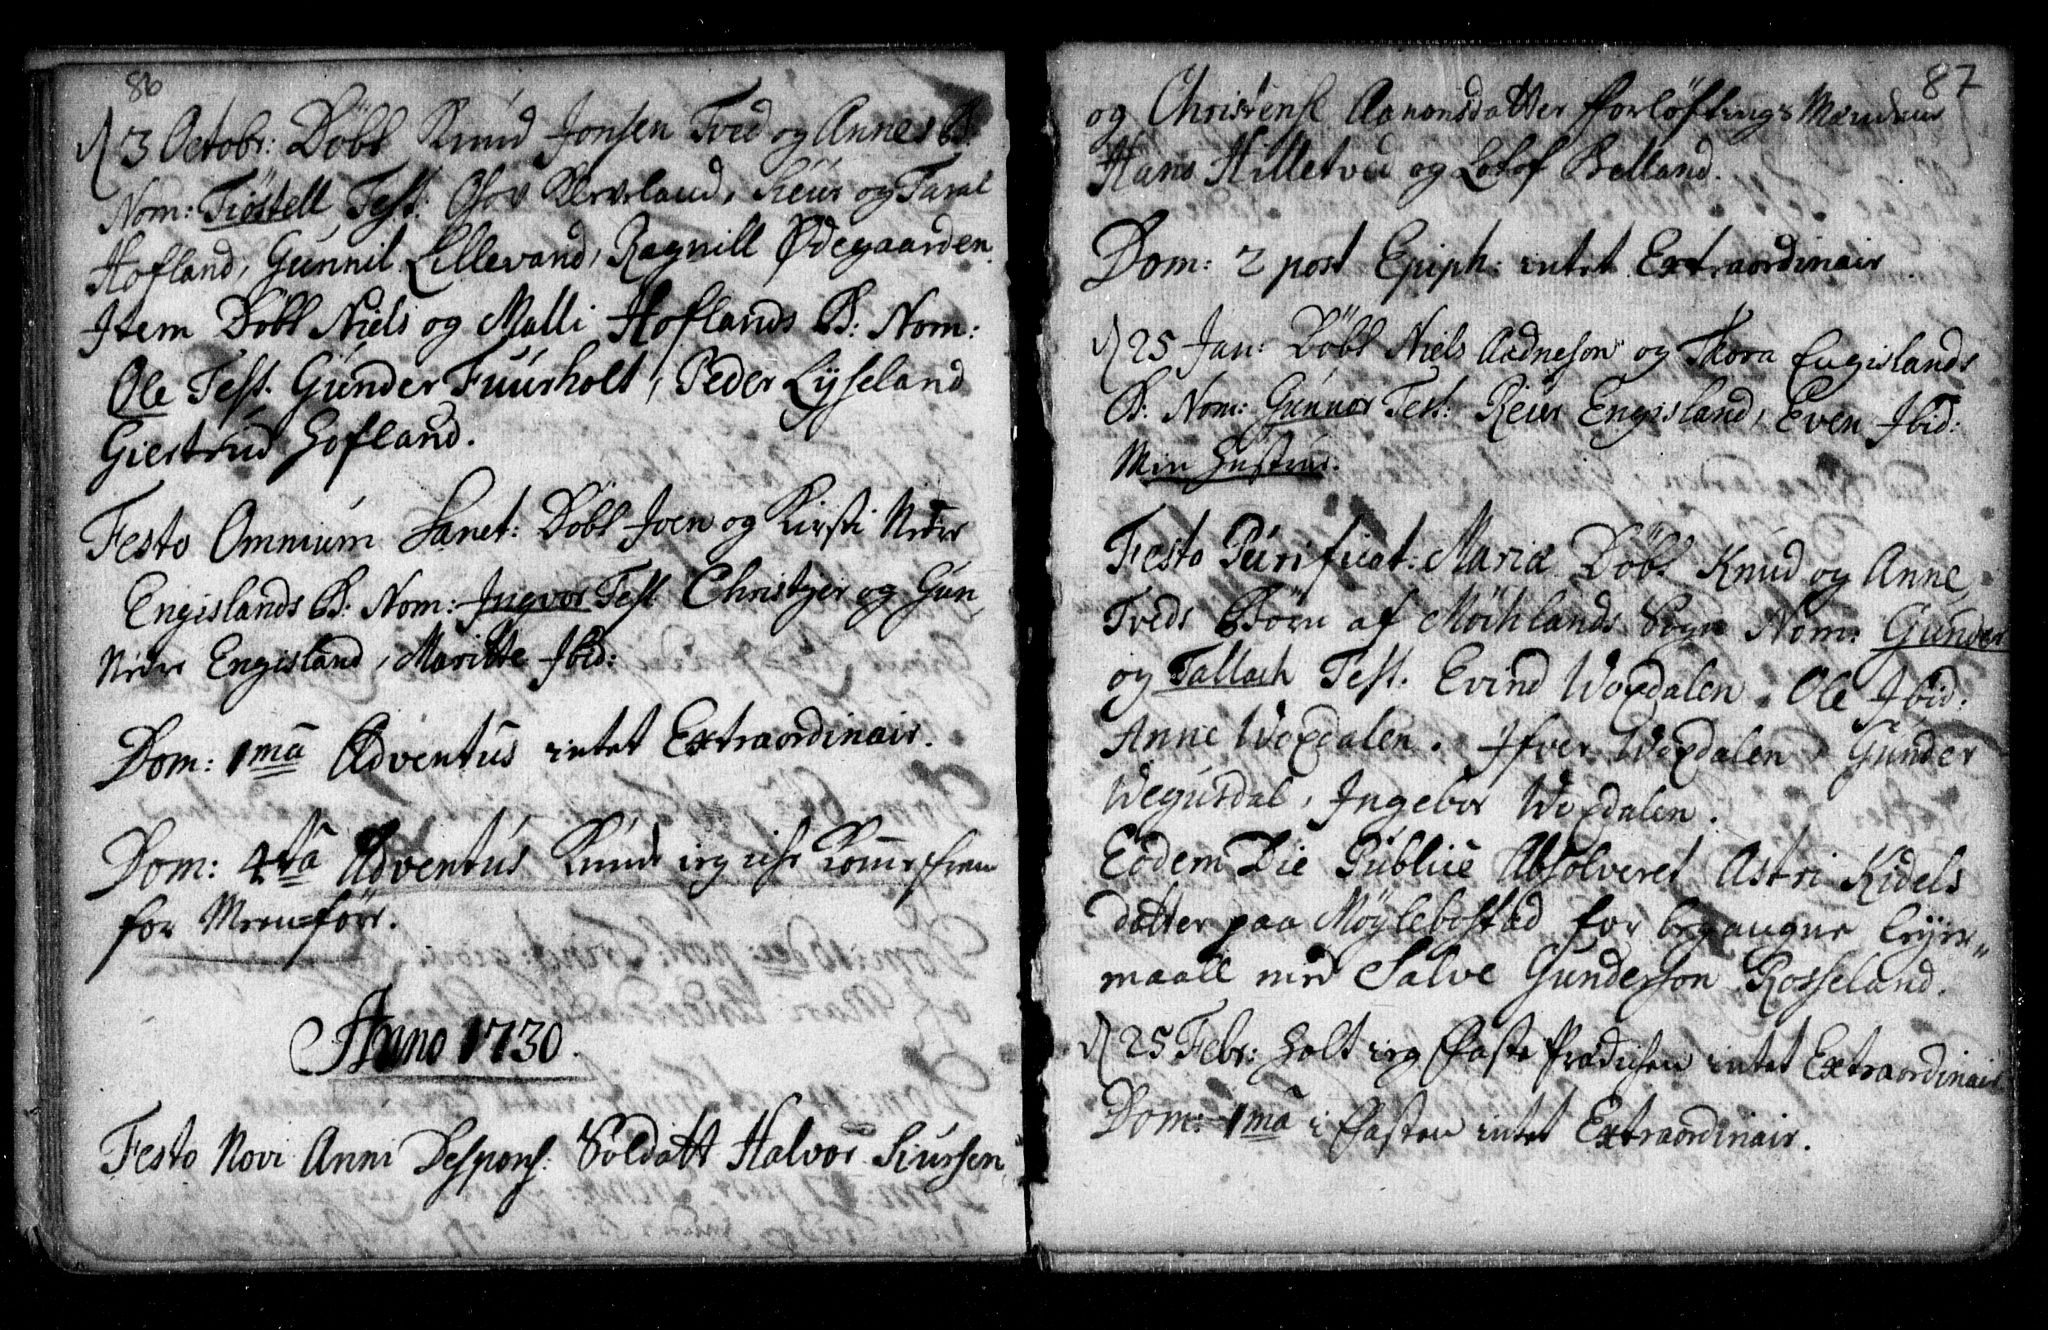 86
d 3 Octobr: Döbt Knud Jonsen Tved og Annes B:
Nom: Tiöstell Test: Olov Kleveland, Siur og Taral
Hofland, Gunnil Lillevand, Ragnill Ødegaarden.
Item Döbt Niels og Malli Hoflands B: Nom:
Ole Test. Gunder Fuurholt, Peder Lÿseland
Giertrud Hofland.
Festo Omnium Sanct: Döbt Joen og Kirsti Nedre
Engislands B: Nom: Ingvor Test Christzer og Gun
Nedre Engisland, Maritte Ibid:
Dom: 1mâ Adventus intet Extraordinair.
Dom: 4tâ Adventus Kunde ieg iche Komme frem
for Meen-före.
Anno 1730.
Festo Novi Anni Despons: Soldatt Halvor Siursen
87
og Christense Aanonsdatter Forlöftings Mændene
Hans Hilletved og Lolof Belland.
Dom: 2 post Epiph: intet Extraordinair.
d 25 Jan: Döbt Niels Adneson og Thora Engislands
B: Nom: Gunnor Test: Reier Engisland, Even Ibid:
Min Hustrue.
Festo Purificat: Mariæ Döbt Knud og Anne
Tveds Börn af Möchlands Sogn Nom: Gunder
og Tallach Test. Evind Woxdalen, Ole Ibid:
Anne Woxdalen. Ifver Woxdalen, Gunder
Wegusdal, Ingebor Woxdalen.
Eodem Die Publicè Absolveret Astri Kidels
datter paa Möylebostad for begangne Leyer"
maall med Salve Gunderson Rosseland.
d 25 Febr: holt ieg Faste Prædichen intet Extraordinair
Dom: 1mâ i Fasten intet Extraordinair.